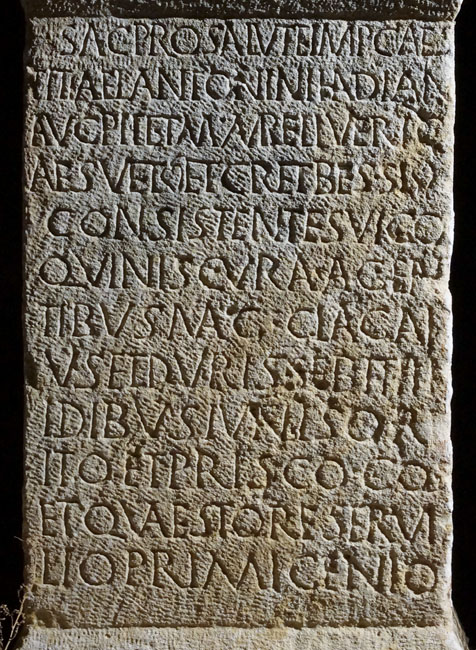 SAC PRO SALVTE IMP CAE
TIT AELANTONINI HADIAN
AVG PII ET M AVRELI VERI C
AES VET ET C R ET BESSI
CONSISTENTES VICO
QVINIS CVRA AGEN
TIBVS MAG CIAGAI
VS ET DVRISSE BITHI
IDIBVS IVNIS ORF
ITO ET PRISCO CO
ET QVAESTORE SERVI
LIO PRIMIGENIO